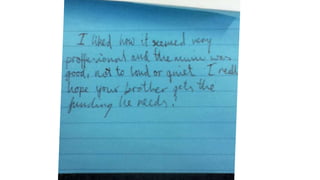 I liked how it seemed very
proffessional and the mum was
good, not to loud or quiet I really
hope your brother gets the
funding he needs!